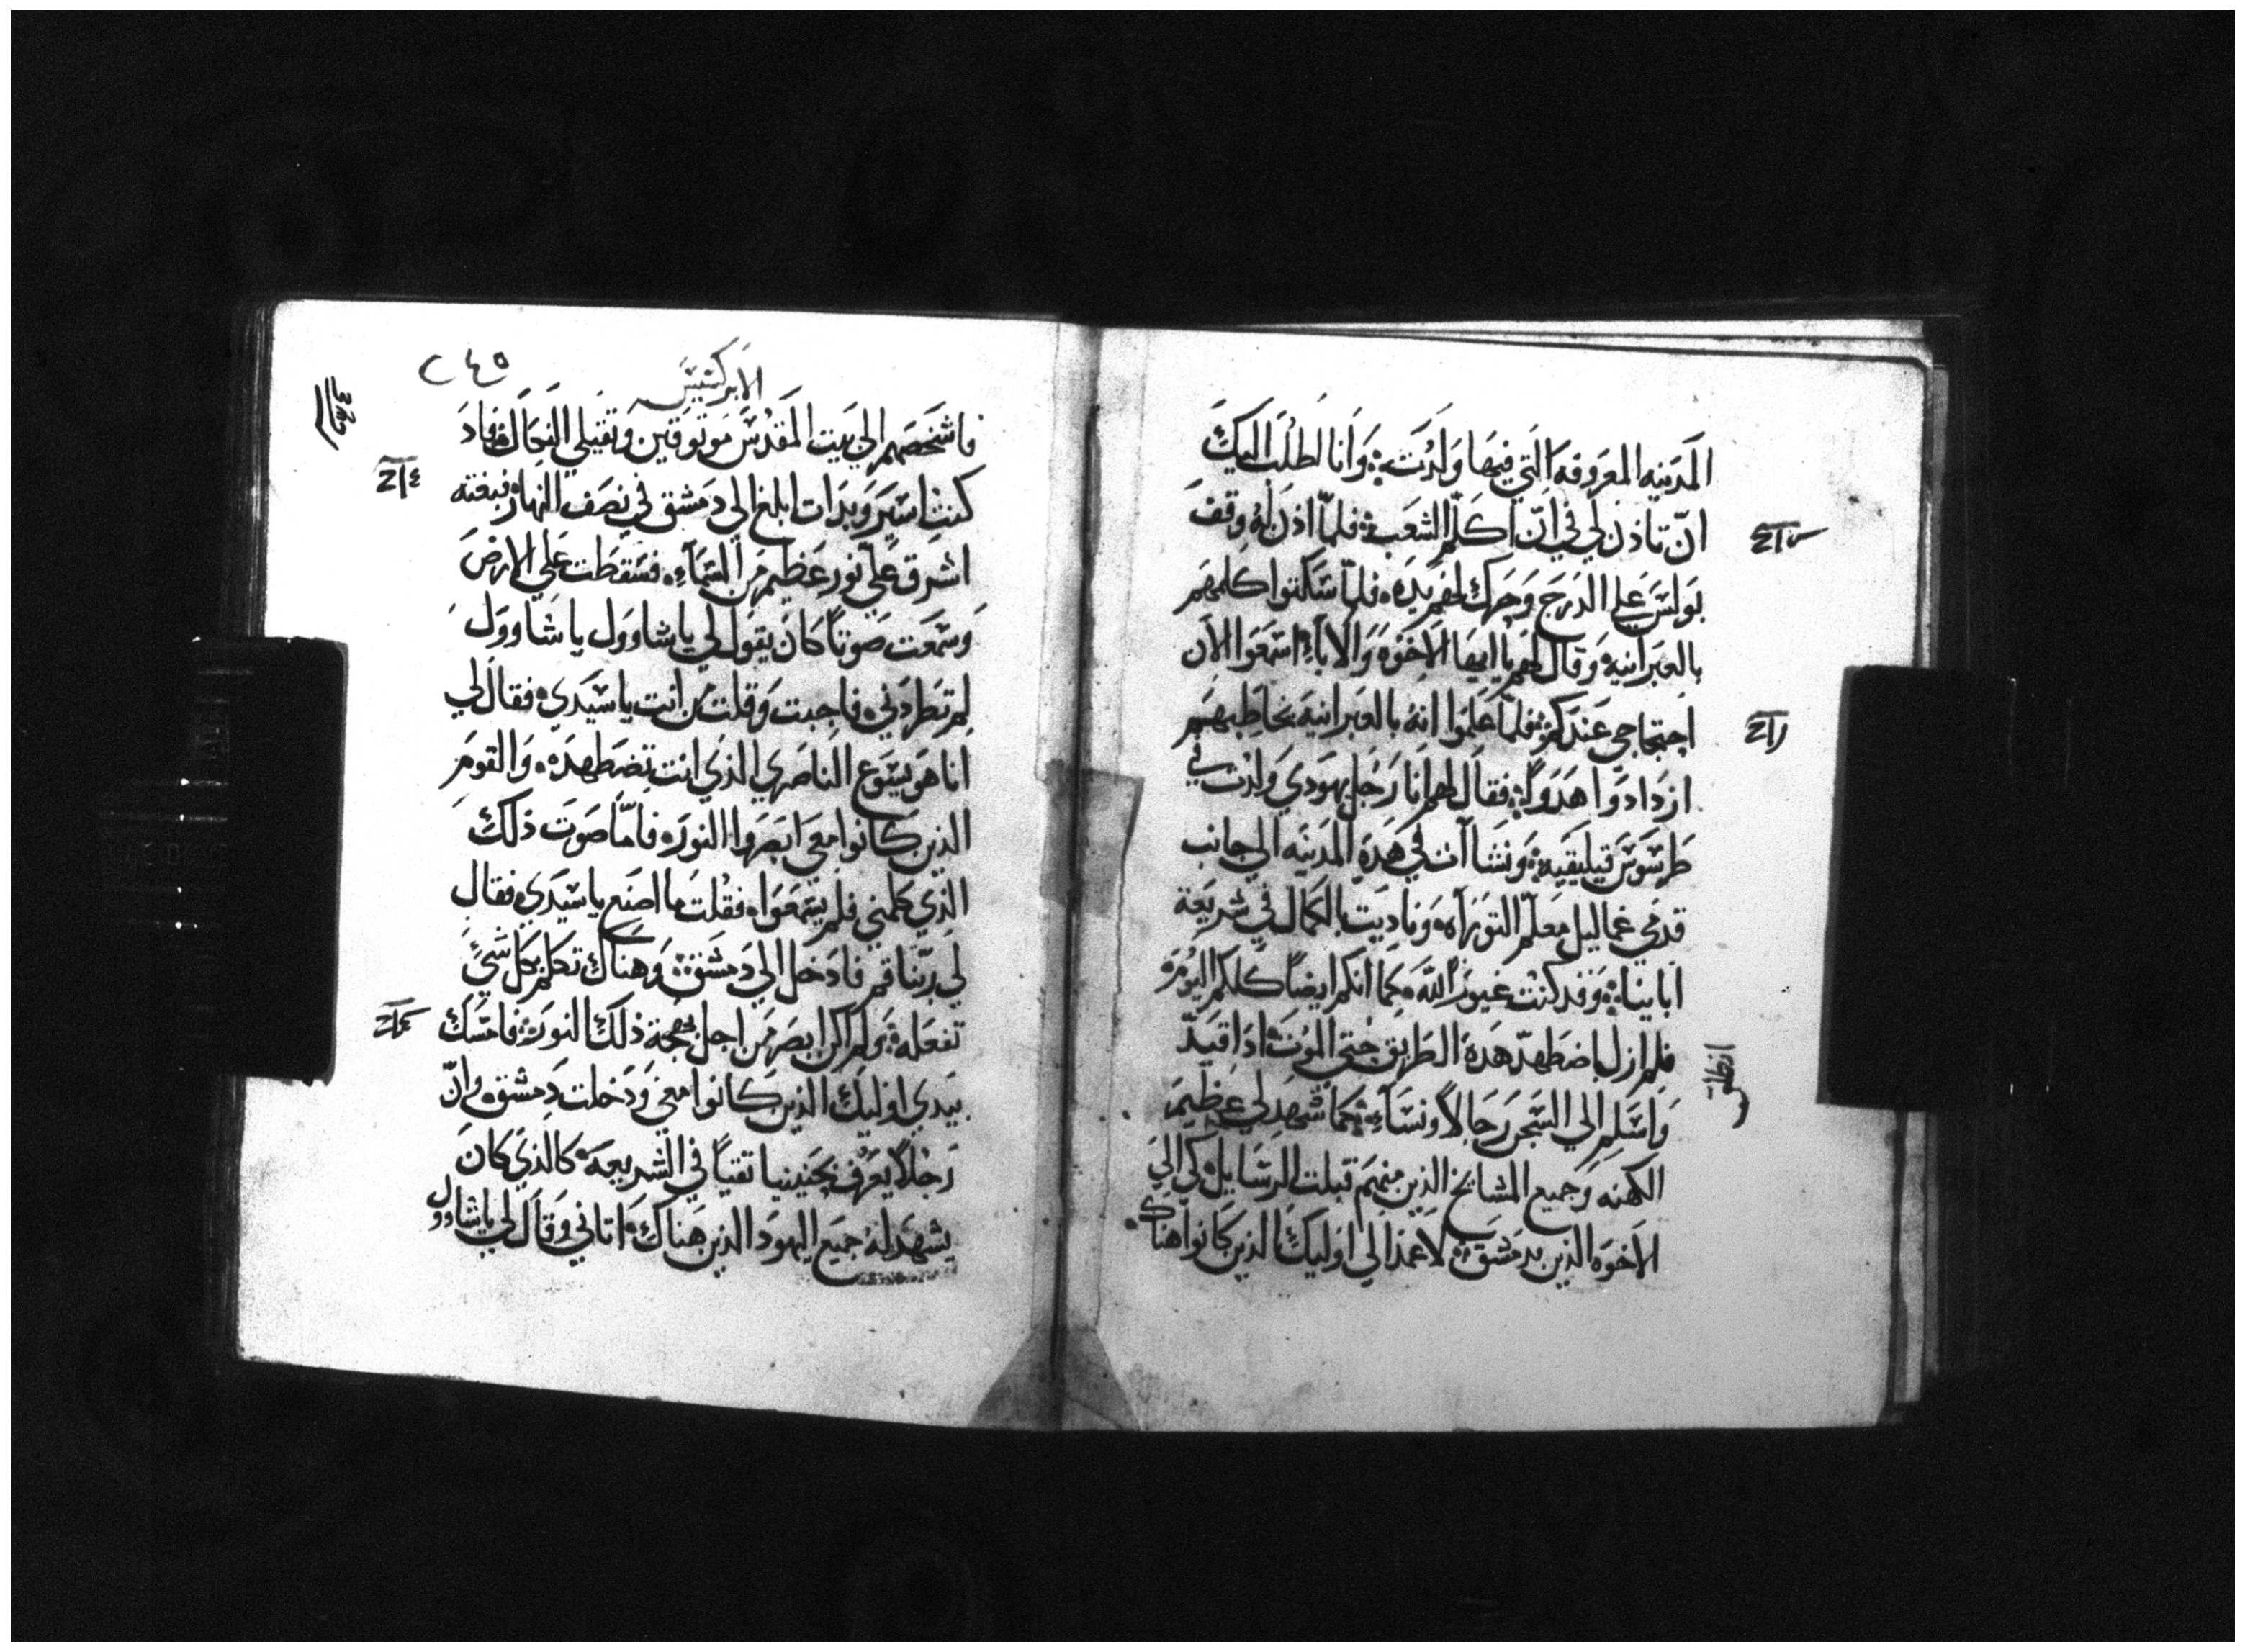 المدينه المعروفه التي فيها ولدت وانا اطلب اليك
ان تاذن لي في ان اكلم الشعب فلما اذن له وقف
بولس علي الدرج وحرك لهم يده فلما سكتوا كلمهم
بالعبرانيه وقال لهم يا ايها الاخوه والاباء اسمعوا الان
احتجاجي عندكم فلما علموا انه بالعبرانيه يخاطبهم
ازدادوا هدوا فقال لهم انا رجل يهودي ولدت في
طرسوس قيليقيه ونشاات في هده المدينه الي جانب
قدمي غماليل معلم التوراه وتاديت بالكمال في شريعة
اباينا وقد كنت غيور الله كما انكم ايضا كلكم اليوم
فلم ازل اضطهد هده الطريق حتي الموت اد اقيد
واسلم الي السجن رجالا ونساء كما شهد لي عظيم
الكهنه وجميع المشايخ الذين منهم قبلت الرسايل كي الي
الاخوه الذين بدمشق لاعمد الي اوليك الذين كانوا هناك
الابركسيس
٢٤٥
فاشخصهم الي بيت المقدس موتوقين وتقبلي النحال فاد
كنت اسير وبدات ابلغ الي دمشق في نصف النهار فبغته
اشرق علي نور عظيم من السماء فسقطت علي الارض
وسمعت صوتا كان يقول لي يا شاوول يا شاوول
لم تطردني فاجبت وقلت من انت يا سيدي فقال لي
انا هو يسوع الناصري الذي انت تضطهده والقوم
الذين كانوا معي ابصروا النور فاما صوت ذلك
الذي كلمني فلم يسمعوا فقلت ما اصنع يا سيدي فقال
لي ربنا قم فادخل الي دمشق وهناك تكلم بكل شي
تفعله ولم اكن ابصر من اجل بهجة ذلك النور فامسك
بيدي اوليك الذين كانوا معي ودخلت دمشق وان
رجلا يعرف بحنينيا تقيا في الشريعه كالذي كان
يشهد له جميع اليهود الذين هناك اتاني وقال لي يا شاوول